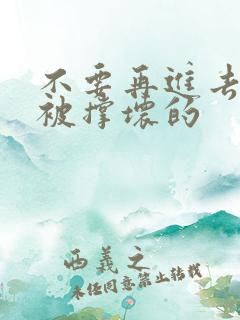 不要再进去
被撑坏的
西義之
未经同意禁止转载